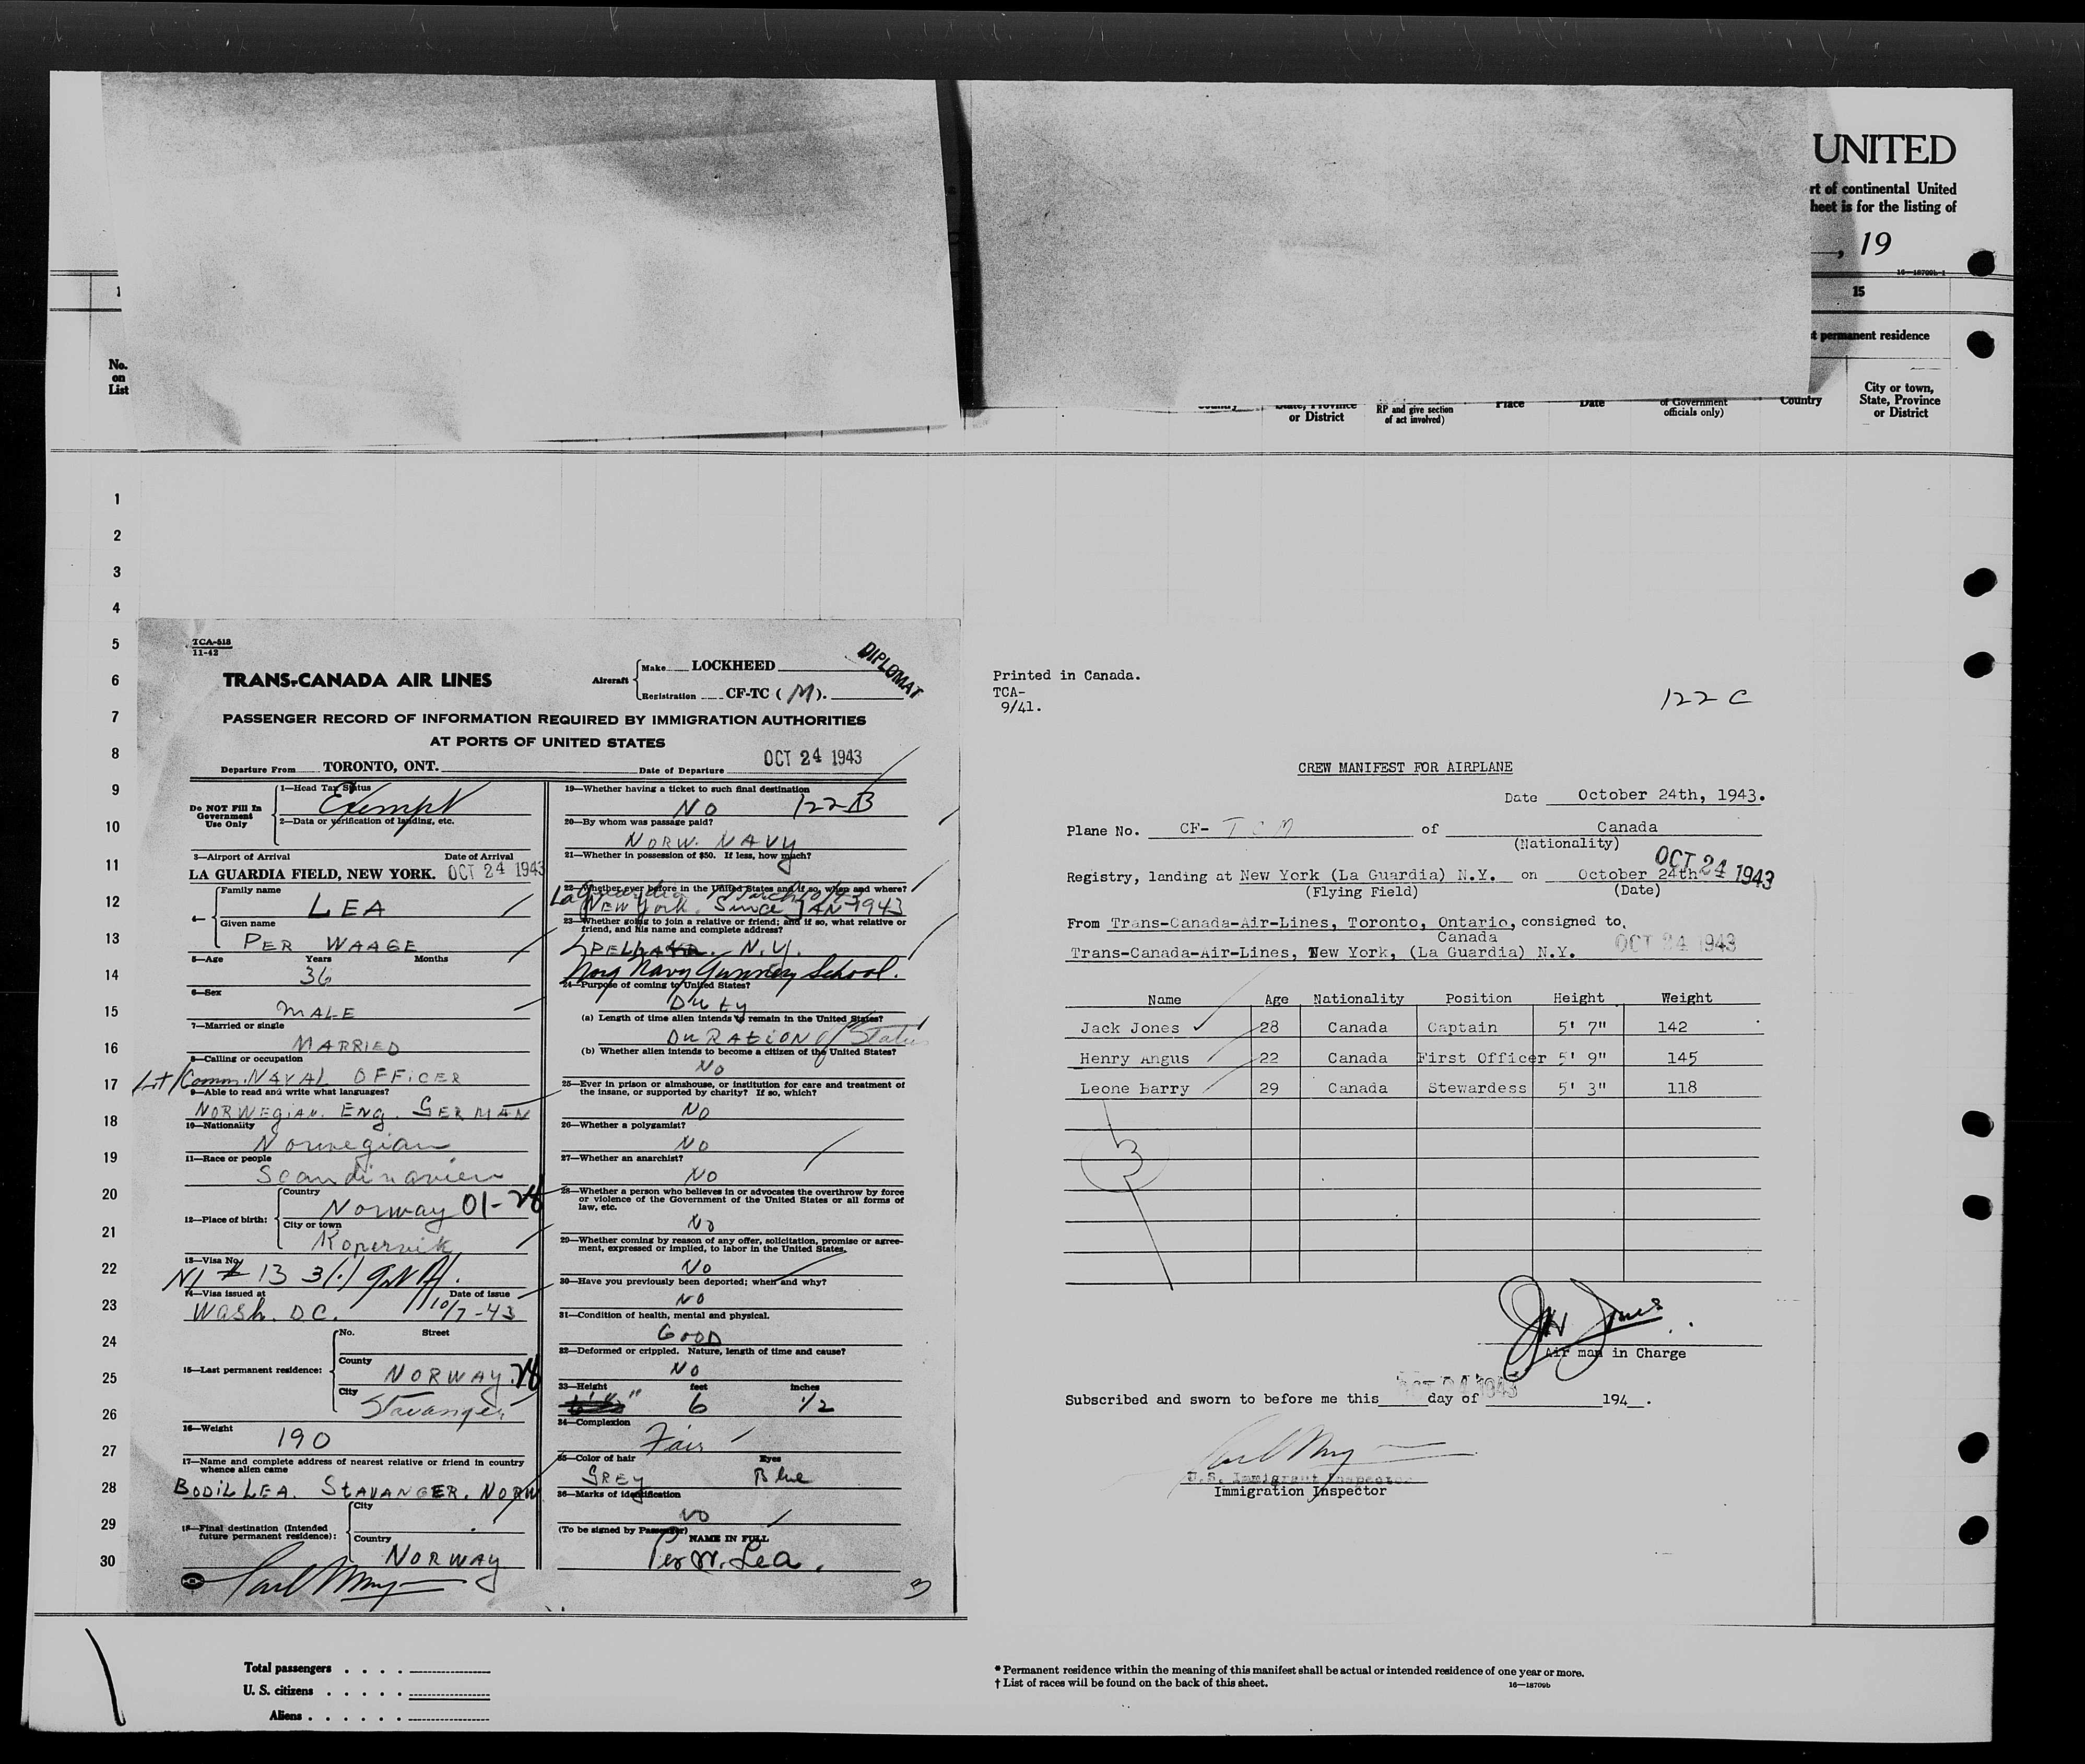 UNITED
rt of continental United
heet is for the listing of
, 19
16—18709b-1
15
t permanent residence
No.
on
List
Country
State, Province
or District
RP and give section
of act involved)
Place
Date
of Government
officials only)
Country
City or town,
State, Province
or District
1
2
3
4
5
6
7
8
9
10
11
12
13
14
15
16
17
18
19
20
21
22
23
24
25
26
27
28
29
30
TCA-518
11-42
TRANS-CANADA AIR LINES
Aircraft
Make LOCKHEED
Registration CF-TC (M).
DIPLOMAT
PASSENGER RECORD OF INFORMATION REQUIRED BY IMMIGRATION AUTHORITIES
AT PORTS OF UNITED STATES
Departure From TORONTO, ONT. Date of Departure OCT 24 1943
Do NOT Fill In
Government
Use Only
1—Head Tax Status
Exempt
2—Data or verification of landing, etc.
3—Airport of Arrival Date of Arrival
LA GUARDIA FIELD, NEW YORK. OCT 24 1943
4—
Family name
LEA
Given name
PER WAAGE
5—Age Years Months
36
6—Sex
MALE
7—Married or single
MARRIED
8—Calling or occupation
Lit/Comm. NAVAL OFFICER
9—Able to read and write what languages?
NORWEGIAN. ENG. GERMAN
10—Nationality
Norwegian
11—Race or people
Scandinavien
12—Place of birth:
Country
Norway 01-28
City or town
Kopervik
13—Visa No.
14—Visa issued at Date of issue
Wash. D.C. 10/7-43
15—Last permanent residence:
No. Street
County
NORWAY.
City
Stavanger
16—Weight
190
17—Name and complete address of nearest relative or friend in country
whence alien came
BODIL LEA. STAVANGER. NORW
18—Final destination (Intended
future permanent residence):
City
Country
NORWAY
19—Whether having a ticket to such final destination
NO 122 B
20—By whom was passage paid?
NORW. NAVY
21—Whether in possession of $50. If less, how much?
22—Whether ever before in the United States and if so, when and where?
La Guardia
NEW York. Since JAN-1943
23—Whether going to join a relative or friend; and if so, what relative or
friend, and his name and complete address?
N.Y.
Norg Navy Gunnery School.
24—Purpose of coming to United States?
Duty
(a) Length of time alien intends to remain in the United States?
DURATION of Status
(b) Whether alien intends to become a citizen of the United States?
NO
25—Ever in prison or almshouse, or institution for care and treatment of
the insane, or supported by charity? If so, which?
NO
26—Whether a polygamist?
NO
27—Whether an anarchist?
NO
28—Whether a person who believes in or advocates the overthrow by force
or violence of the Government of the United States or all forms of
law, etc.
NO
29—Whether coming by reason of any offer, solicitation, promise or agree-
ment, expressed or implied, to labor in the United States.
NO
30—Have you previously been deported; when and why?
NO
31—Condition of health, mental and physical.
GOOD
32—Deformed or crippled. Nature, length of time and cause?
NO
33—Height feet inches
6 1/2
34—Complexion
Fair
35—Color of hair Eyes
GREY Blue
36—Marks of identification
NO
(To be signed by Passenger)
NAME IN FULL
Per W. Lea.
3
Printed in Canada.
TCA-
9/41.
122 C
CREW MANIFEST FOR AIRPLANE
Date October 24th, 1943.
Plane No. CF- TCM of Canada
(Nationality)
OCT 24 1943
Registry, landing at New York (La Guardia) N.Y. on October 24th
(Flying Field) (Date)
From Trans-Canada-Air-Lines, Toronto, Ontario, consigned to,
Canada
Trans-Canada-Air-Lines, New York, (La Guardia) N.Y. OCT 24 1943
Name Age Nationality Position Height Weight
Jack Jones 28 Canada Captain 5' 7" 142
Henry Angus 22 Canada First Officer 5' 9" 145
Leone Barry 29 Canada Stewardess 5' 3" 118
3
Air man in Charge
Subscribed and sworn to before me this day of 194 .
OCT 24 1943
U.S. Immigrant Inspector
Immigration Inspector
Total passengers . . . .
U. S. citizens . . . . .
Aliens . . . . . .
* Permanent residence within the meaning of this manifest shall be actual or intended residence of one year or more.
† List of races will be found on the back of this sheet.
16—18709b